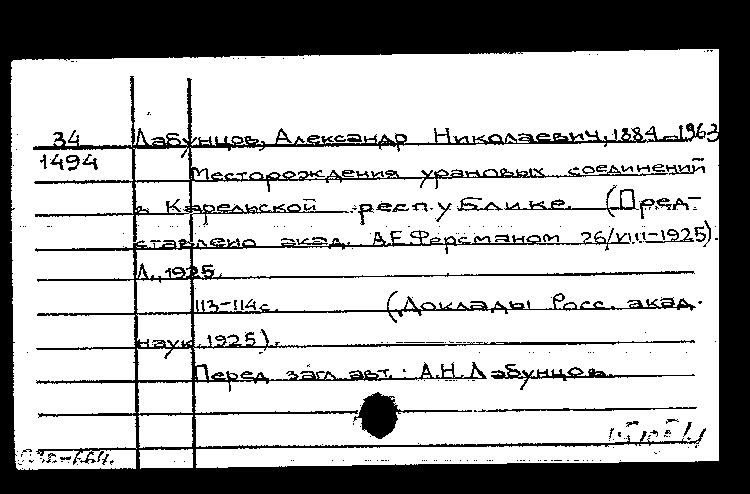 34 Лабунцов, Александр Николаевич, 1884-1963
1494 Месторождения урановых соединений
в Карельской республике. (Пред-
ставлено акад. А.Е.Ферсманом 26/VIII-1925).
Л., 1925.
113-114с. (Доклады Росс. акад.
наук 1925).
Перед загл. авт.: А.Н. Лабунцов.